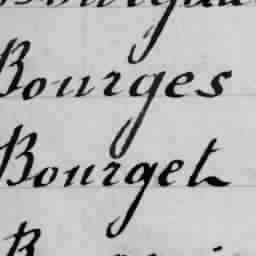 Bourges
Bourget